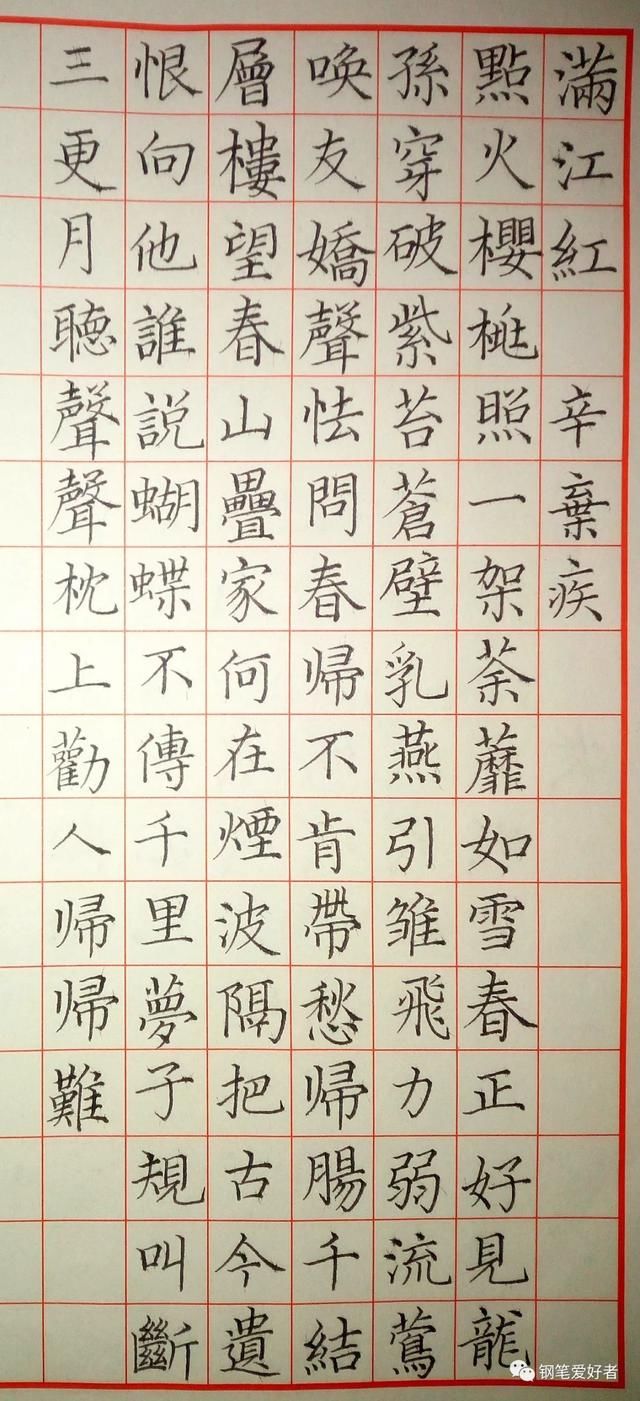 滿江紅 辛棄疾
點火櫻桃照一架荼蘼如雪春正好見龍
孫穿破紫苔蒼壁乳燕引雏飛力弱流鶯
喚友嬌聲怯問春帰不肯帶愁帰腸千結
層樓望春山疊家何在煙波隔把古今遺
恨向他誰説蝴蝶不傳千里夢子規叫斷
三更月聴聲聲枕上勸人帰帰難
钢笔爱好者